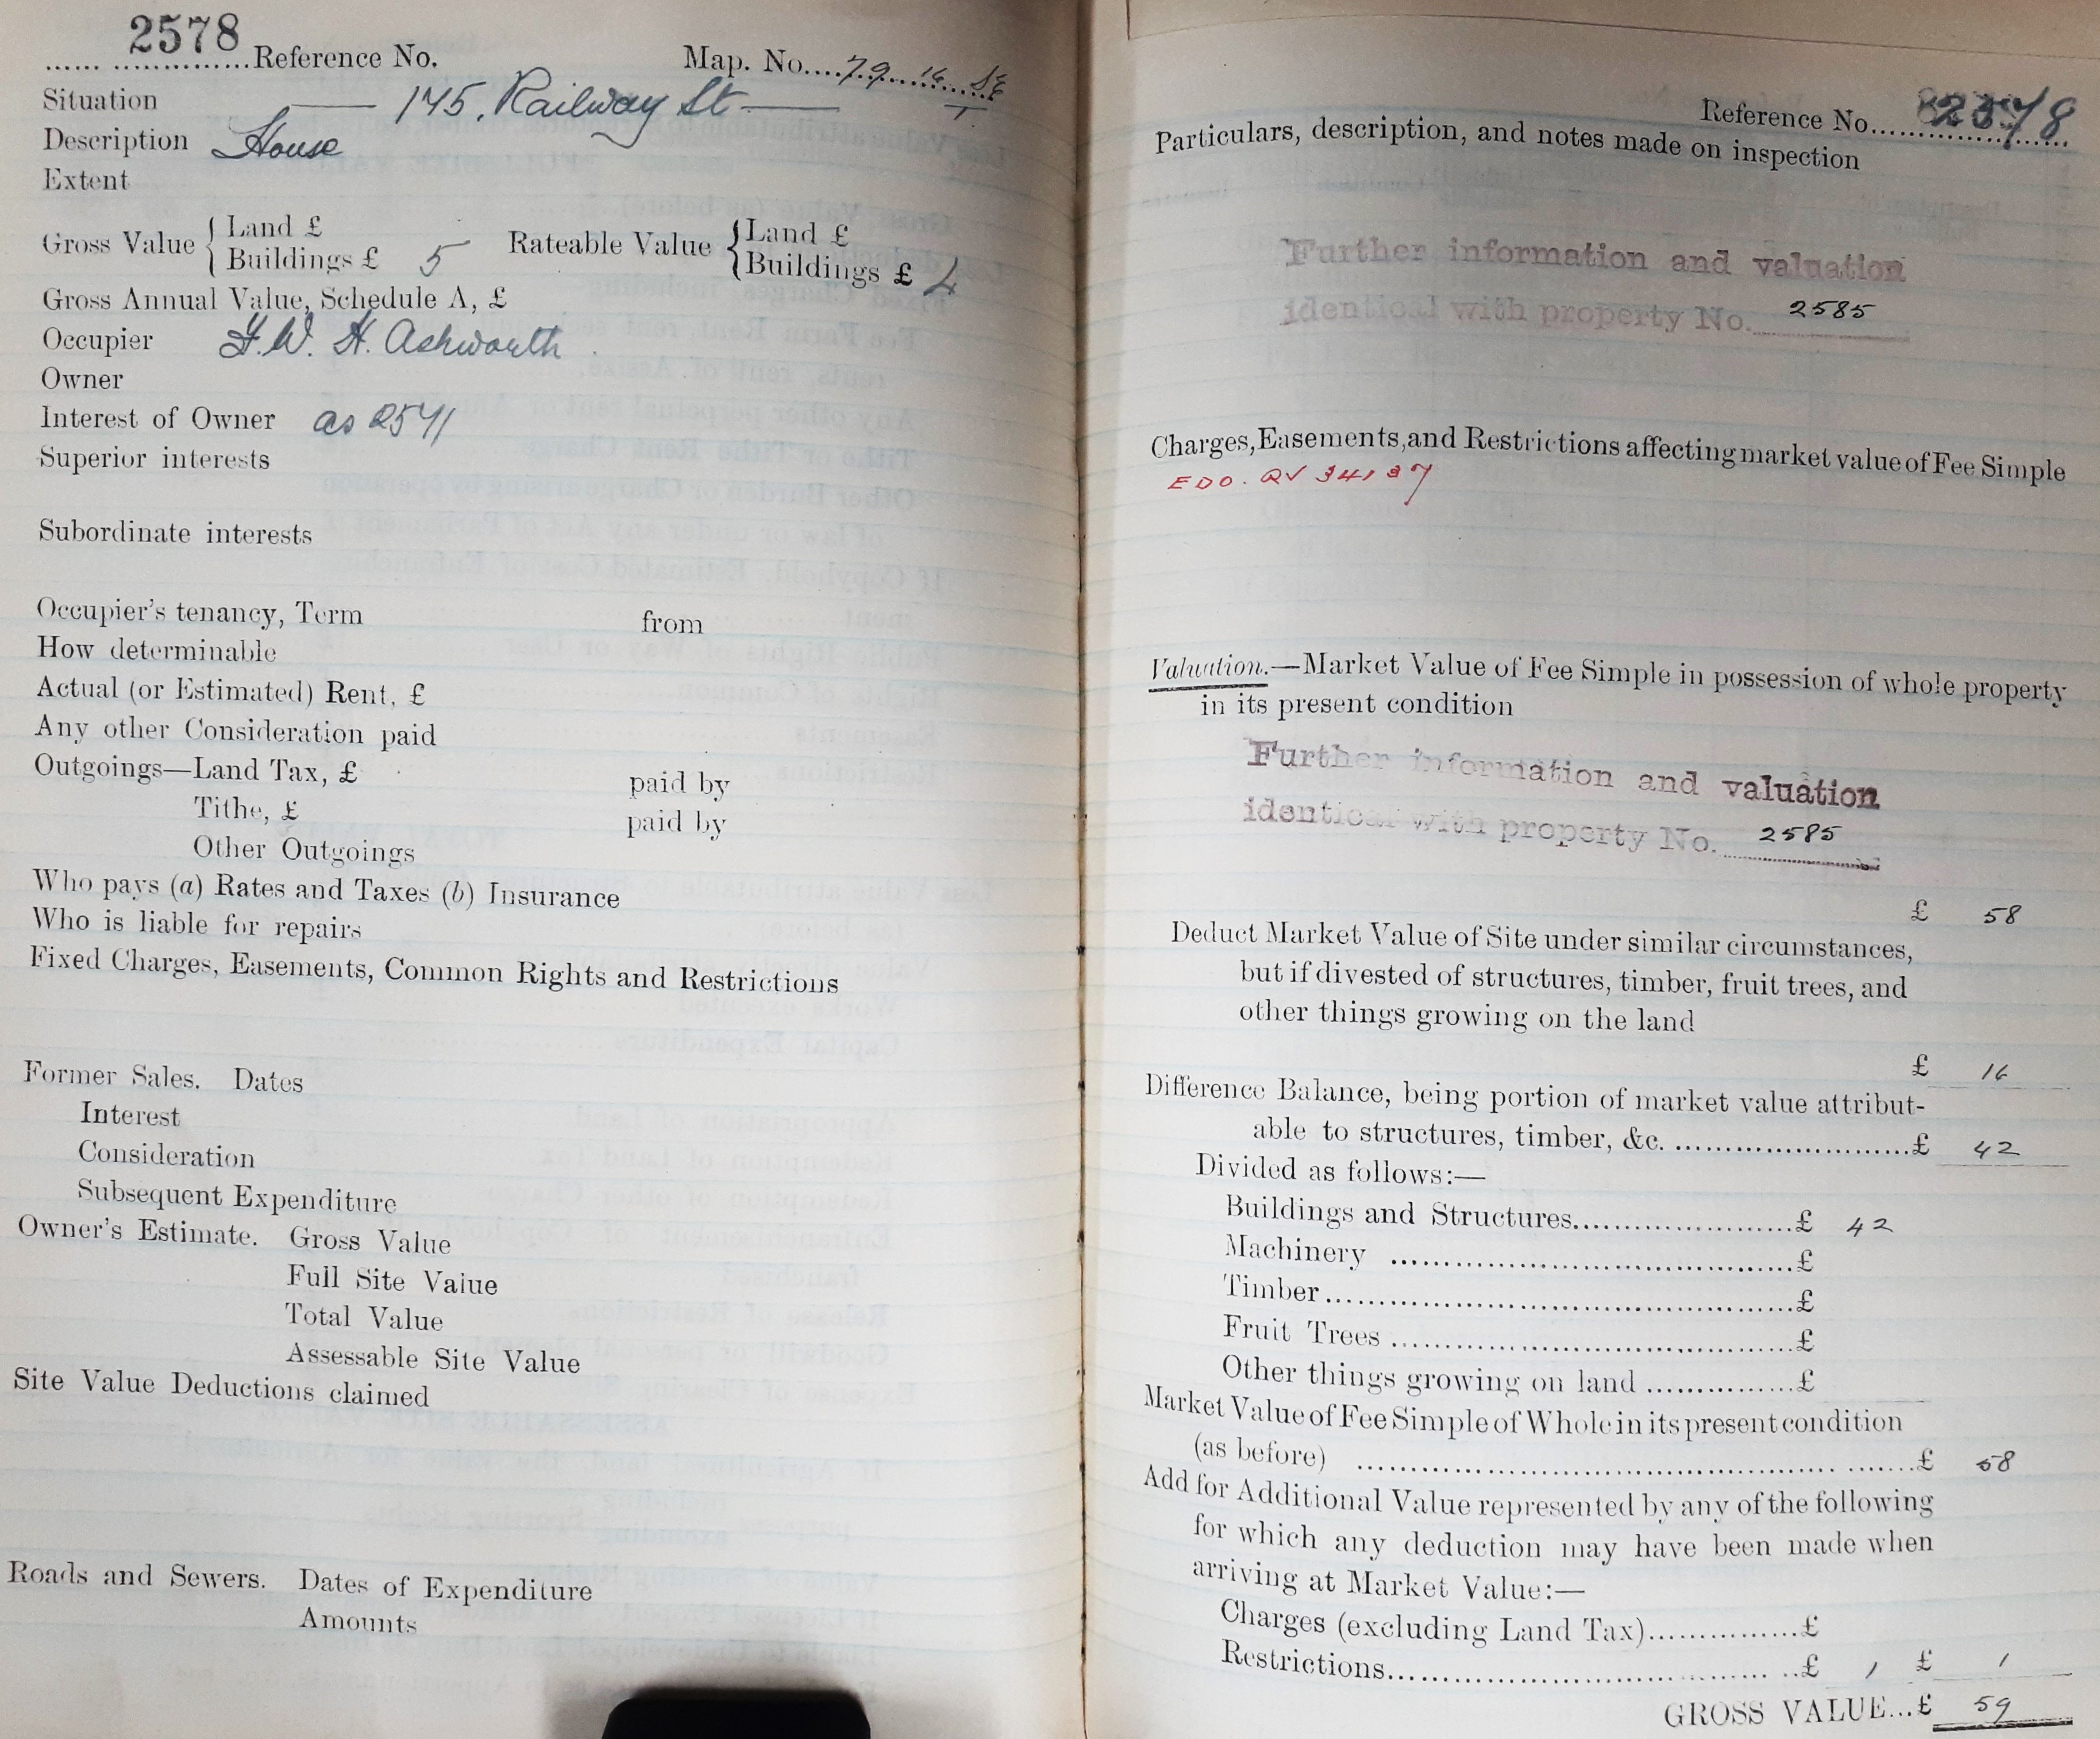 2578
Reference No.
Map. No. 79.16. SE
T.
Situation — 145, Railway St —
Description House
Extent
Gross Value { Land £
Buildings £ 5
Rateable Value { Land £
Buildings £ 4
Gross Annual Value, Schedule A, £
Occupier F. W. H. Ashworth.
Owner
Interest of Owner as 2541
Superior interests
Subordinate interests
Occupier's tenancy, Term from
How determinable
Actual (or Estimated) Rent, £
Any other Consideration paid
Outgoings—Land Tax, £ paid by
Tithe, £ paid by
Other Outgoings
Who pays (a) Rates and Taxes (b) Insurance
Who is liable for repairs
Fixed Charges, Easements, Common Rights and Restrictions
Former Sales. Dates
Interest
Consideration
Subsequent Expenditure
Owner's Estimate. Gross Value
Full Site Value
Total Value
Assessable Site Value
Site Value Deductions claimed
Roads and Sewers. Dates of Expenditure
Amounts
Reference No. 2578
Particulars, description, and notes made on inspection
Further information and valuation
identical with property No. 2585
Charges, Easements, and Restrictions affecting market value of Fee Simple
EDO. QV 34137
Valuation.—Market Value of Fee Simple in possession of whole property
in its present condition
Further information and valuation
identical with property No. 2585
£ 58
Deduct Market Value of Site under similar circumstances,
but if divested of structures, timber, fruit trees, and
other things growing on the land
£ 16
Difference Balance, being portion of market value attribut-
able to structures, timber, &c. £ 42
Divided as follows:—
Buildings and Structures £ 42
Machinery £
Timber £
Fruit Trees £
Other things growing on land £
Market Value of Fee Simple of Whole in its present condition
(as before) £ 58
Add for Additional Value represented by any of the following
for which any deduction may have been made when
arriving at Market Value:—
Charges (excluding Land Tax) £
Restrictions £ 1 £ 1
GROSS VALUE...£ 59